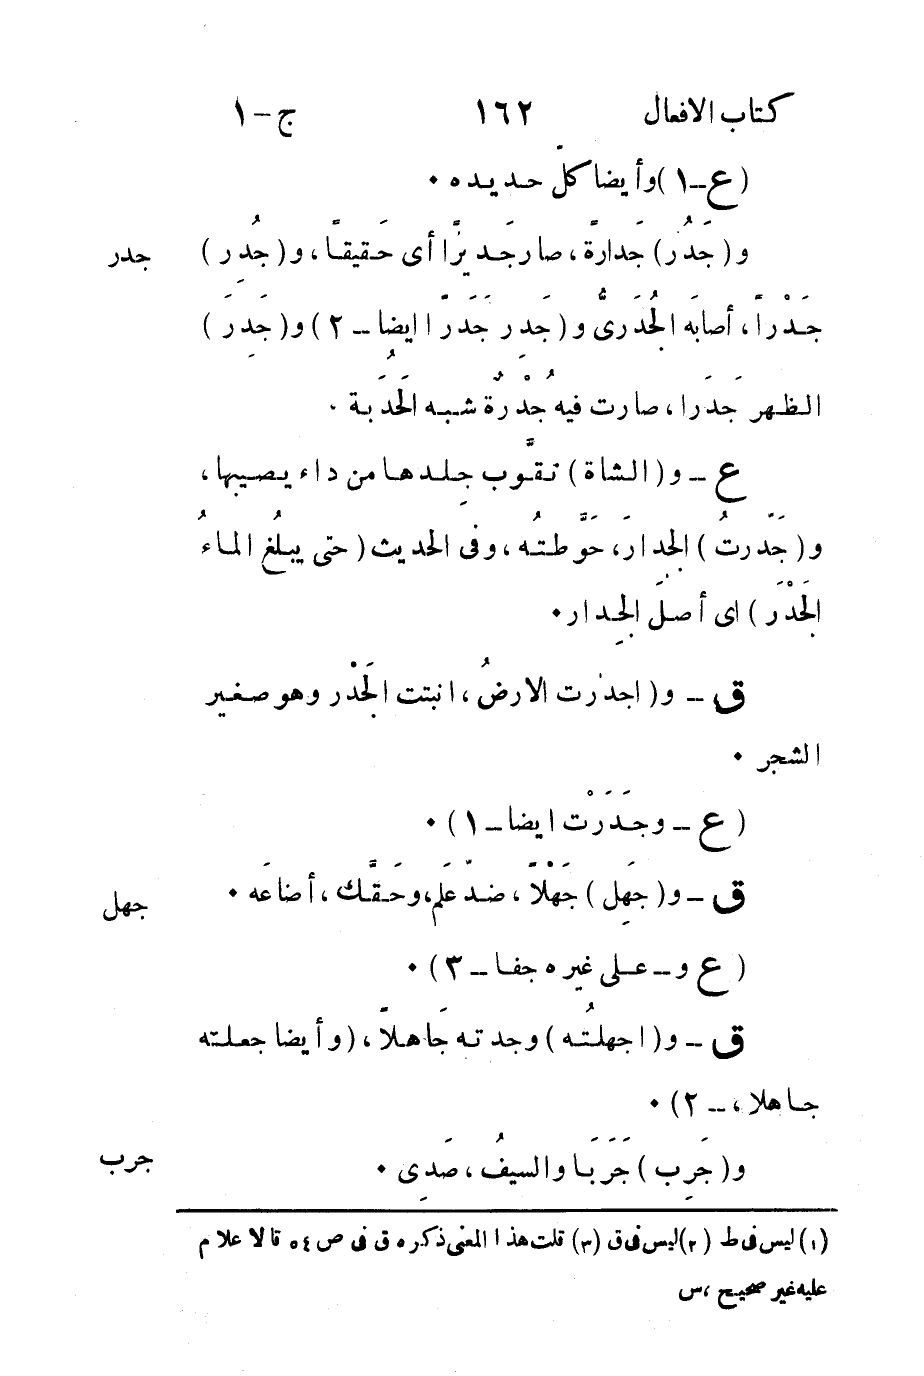 كتاب الافعال ١٦٢ ج–١
(ع–١) وأيضا كلّ حديده ٠
جدر
و(جَدُر) جَدارةً، صار جَديرًا أى حَقيقًا، و(جُدِر)
جَدْراً، أصابَه الجُدَرىُّ و(جَدِر جَدَرًا ايضا – ٢) و(جَدِرَ)
الظهرُ جَدَرا، صارت فيه جُدْرةٌ شبه الحَدَبة ٠
ع – و(الشاة) تقوَّب جِلدها من داء يصيبها،
و(جَدَّرتُ) الجِدارَ، حَوَّطتُه، وفى الحديث (حتى يبلُغ الماءُ
الجَدْرَ) اى أصلَ الجِدار ٠
ق – و(اجدَرت الارضُ، انبتت الجَدْر وهو صغير
الشجر ٠
(ع – وجَدَرَتْ ايضا – ١) ٠
جهل
ق – و(جَهِل) جَهْلًا، ضدّ عَلِم، وحَقَّك، أضاعَه ٠
(ع و – على غيره جفا – ٣) ٠
ق – و(اجهلتُه) وجدته جَاهلًا، (وأيضا جعلته
جاهلا، – ٢) ٠
جرب
و(جَرِب) جَرَبَا والسيفُ، صَدِى ٠
(١) ليس فى ط (٢) ليس فى ق (٣) قلت هذا المعنى ذكره ق فى ص ٥٤ قالاعلام
عليه غير صحيح، س